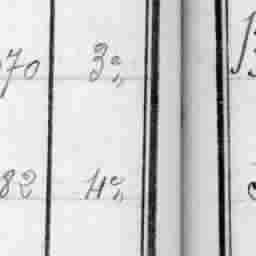 70 3%
82 4%